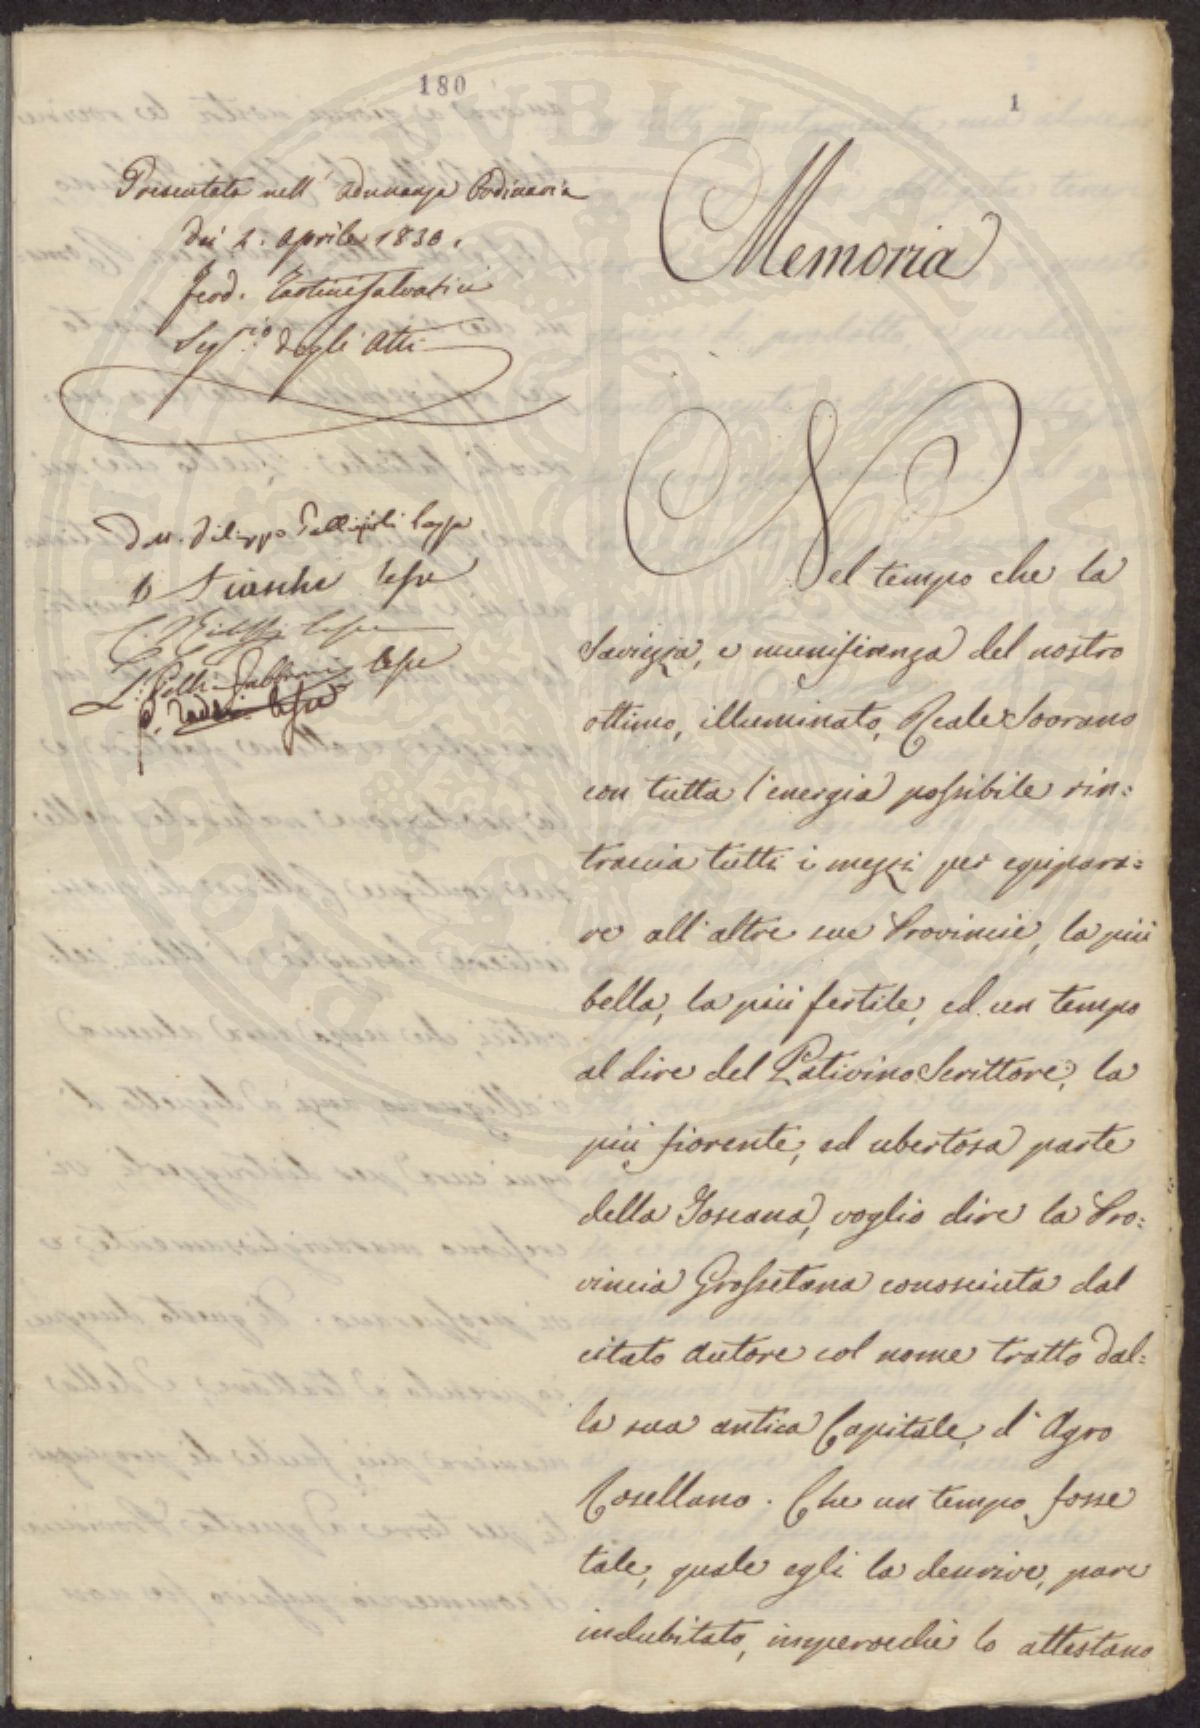 180
1
Presentata nell' adunanza Ordinaria
dei 2. Aprile 1830.
Ferd. Tartini Salvatici
Seg.rio degli Atti
Memoria
Nel tempo che la
Saviezza, e munificenza del nostro
ottimo, illuminato, Reale Sovrano
con tutta l'energia possibile rin:
traccia tutti i mezzi per equipara:
re all'altre sue Provincie, la più
bella, la più fertile, ed un tempo
al dire del Patavino Scrittore, la
più fiorente, ed ubertosa parte
della Toscana, voglio dire la Pro:
vincia Grossetana conosciuta dal
citato autore col nome tratto dal:
la sua antica Capitale, d'Agro
Rosellano. Che un tempo fosse
tale, quale egli la descrive, pare
indubitato, imperocchè lo attestano